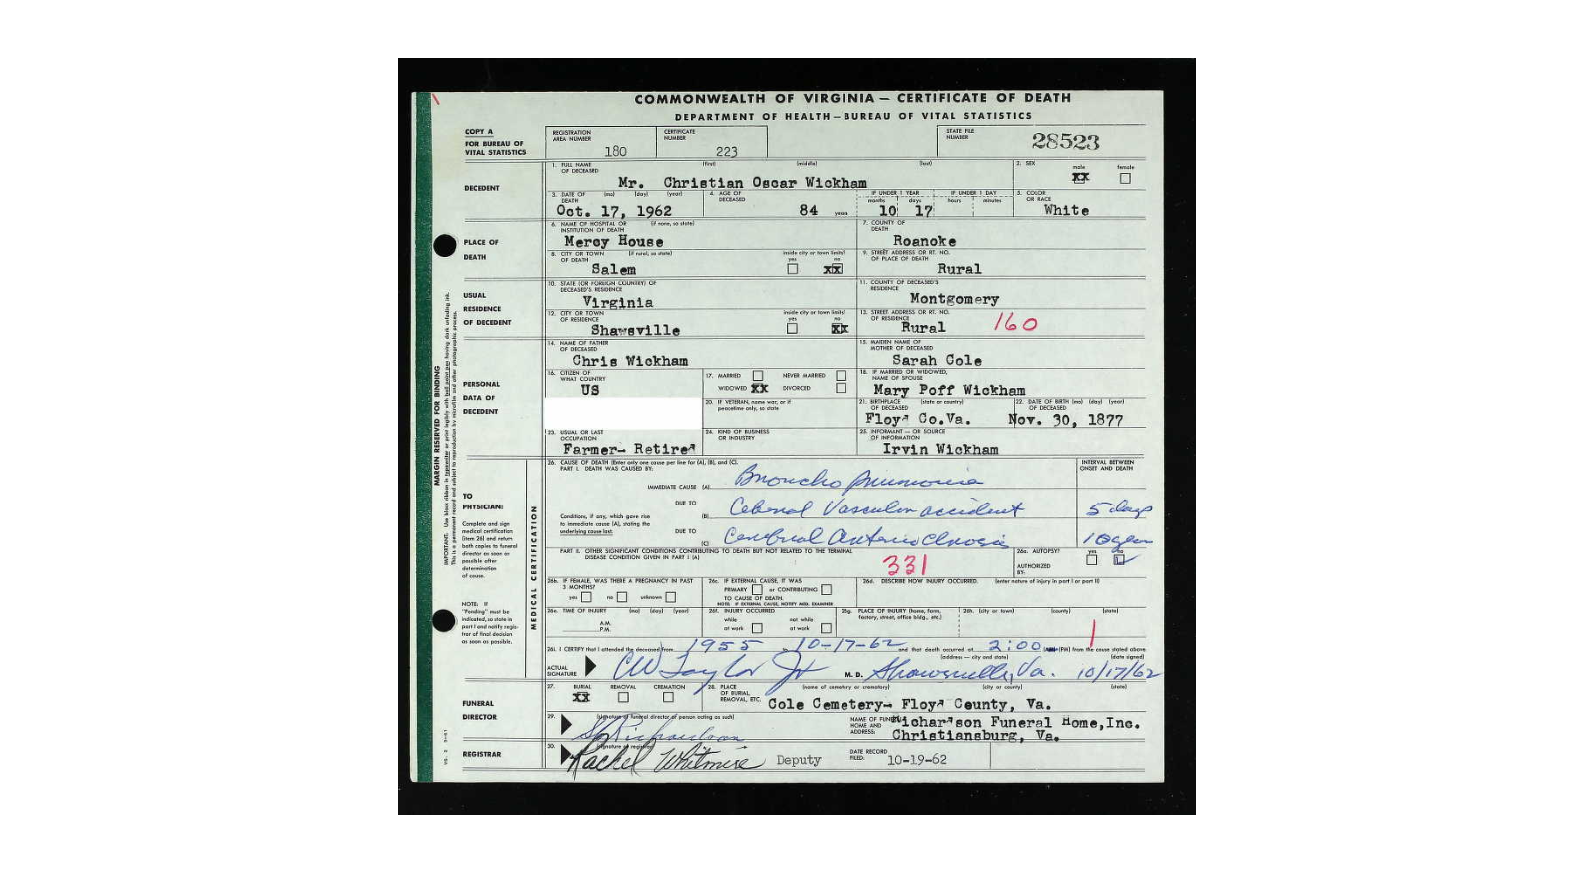 COMMONWEALTH OF VIRGINIA — CERTIFICATE OF DEATH
DEPARTMENT OF HEALTH — BUREAU OF VITAL STATISTICS
COPY A
FOR BUREAU OF
VITAL STATISTICS
REGISTRATION AREA NUMBER 180
CERTIFICATE NUMBER 223
STATE FILE NUMBER 28523
DECEDENT
1. FULL NAME OF DECEASED (first) (middle) (last)
Mr. Christian Oscar Wickham
2. SEX male XX female
3. DATE OF DEATH (mo) (day) (year)
Oct. 17, 1962
4. AGE OF DECEASED 84 years
IF UNDER 1 YEAR months 10 days 17
IF UNDER 1 DAY hours minutes
5. COLOR OR RACE White
PLACE OF
DEATH
6. NAME OF HOSPITAL OR INSTITUTION OF DEATH (if none, so state)
Mercy House
7. COUNTY OF DEATH
Roanoke
8. CITY OR TOWN OF DEATH (if rural, so state)
Salem
inside city or town limits? yes no XX
9. STREET ADDRESS OR RT. NO. OF PLACE OF DEATH
Rural
USUAL
RESIDENCE
OF DECEDENT
10. STATE (OR FOREIGN COUNTRY) OF DECEASED'S RESIDENCE
Virginia
11. COUNTY OF DECEASED'S RESIDENCE
Montgomery
12. CITY OR TOWN OF RESIDENCE
Shawsville
inside city or town limits? yes no XX
13. STREET ADDRESS OR RT. NO. OF RESIDENCE
Rural 160
PERSONAL
DATA OF
DECEDENT
14. NAME OF FATHER OF DECEASED
Chris Wickham
15. MAIDEN NAME OF MOTHER OF DECEASED
Sarah Cole
16. CITIZEN OF WHAT COUNTRY
US
17. MARRIED NEVER MARRIED
WIDOWED XX DIVORCED
18. IF MARRIED OR WIDOWED, NAME OF SPOUSE
Mary Poff Wickham
20. IF VETERAN, name war, or if peacetime only, so state
21. BIRTHPLACE OF DECEASED (state or country)
Floyd Co.Va.
22. DATE OF BIRTH OF DECEASED (mo) (day) (year)
Nov. 30, 1877
23. USUAL OR LAST OCCUPATION
Farmer- Retired
24. KIND OF BUSINESS OR INDUSTRY
25. INFORMANT — OR SOURCE OF INFORMATION
Irvin Wickham
MARGIN RESERVED FOR BINDING
MEDICAL CERTIFICATION
TO
PHYSICIAN:
Complete and sign
medical certification
(item 26) and return
both copies to funeral
director as soon as
possible after
determination
of cause.
NOTE: If
"Pending" must be
indicated, so state in
part I and notify regis-
trar of final decision
as soon as possible.
26. CAUSE OF DEATH (Enter only one cause per line for (A), (B), and (C).
PART I. DEATH WAS CAUSED BY:
INTERVAL BETWEEN ONSET AND DEATH
IMMEDIATE CAUSE (A) Broncho pneumonia
DUE TO (B) Cerebral Vascular accident 5 days
Conditions, if any, which gave rise
to immediate cause (A), stating the
underlying cause last.
DUE TO (C) Cerebral Arteriosclerosis 10 years
PART II. OTHER SIGNIFICANT CONDITIONS CONTRIBUTING TO DEATH BUT NOT RELATED TO THE TERMINAL
DISEASE CONDITION GIVEN IN PART I (A)
331
26a. AUTOPSY? yes no
AUTHORIZED BY:
26b. IF FEMALE, WAS THERE A PREGNANCY IN PAST 3 MONTHS?
yes no unknown
26c. IF EXTERNAL CAUSE, IT WAS
PRIMARY or CONTRIBUTING
TO CAUSE OF DEATH.
NOTE: IF EXTERNAL CAUSE, NOTIFY MED. EXAMINER
26d. DESCRIBE HOW INJURY OCCURRED. (enter nature of injury in part I or part II)
26e. TIME OF INJURY (mo) (day) (year)
A.M.
P.M.
26f. INJURY OCCURRED
while at work not while at work
26g. PLACE OF INJURY (home, farm, factory, street, office bldg., etc.)
26h. (city or town) (county) (state)
1
26i. I CERTIFY that I attended the deceased from 1955 10-17-62 and that death occurred at 2:00 (PM) from the cause stated above
ACTUAL SIGNATURE CW Taylor Jr M. D.
(address — city and state) (date signed)
Shawsville, Va. 10/17/62
FUNERAL
DIRECTOR
27. BURIAL XX REMOVAL CREMATION
28. PLACE OF BURIAL, REMOVAL, ETC. (name of cemetery or crematory) (city or county) (state)
Cole Cemetery- Floyd County, Va.
29. (signature of funeral director or person acting as such)
Richardson
NAME OF FUNERAL HOME AND ADDRESS:
Richardson Funeral Home,Inc.
Christiansburg, Va.
REGISTRAR
30. (signature of registrar)
Rachel Whitmire Deputy
DATE RECORD FILED: 10-19-62